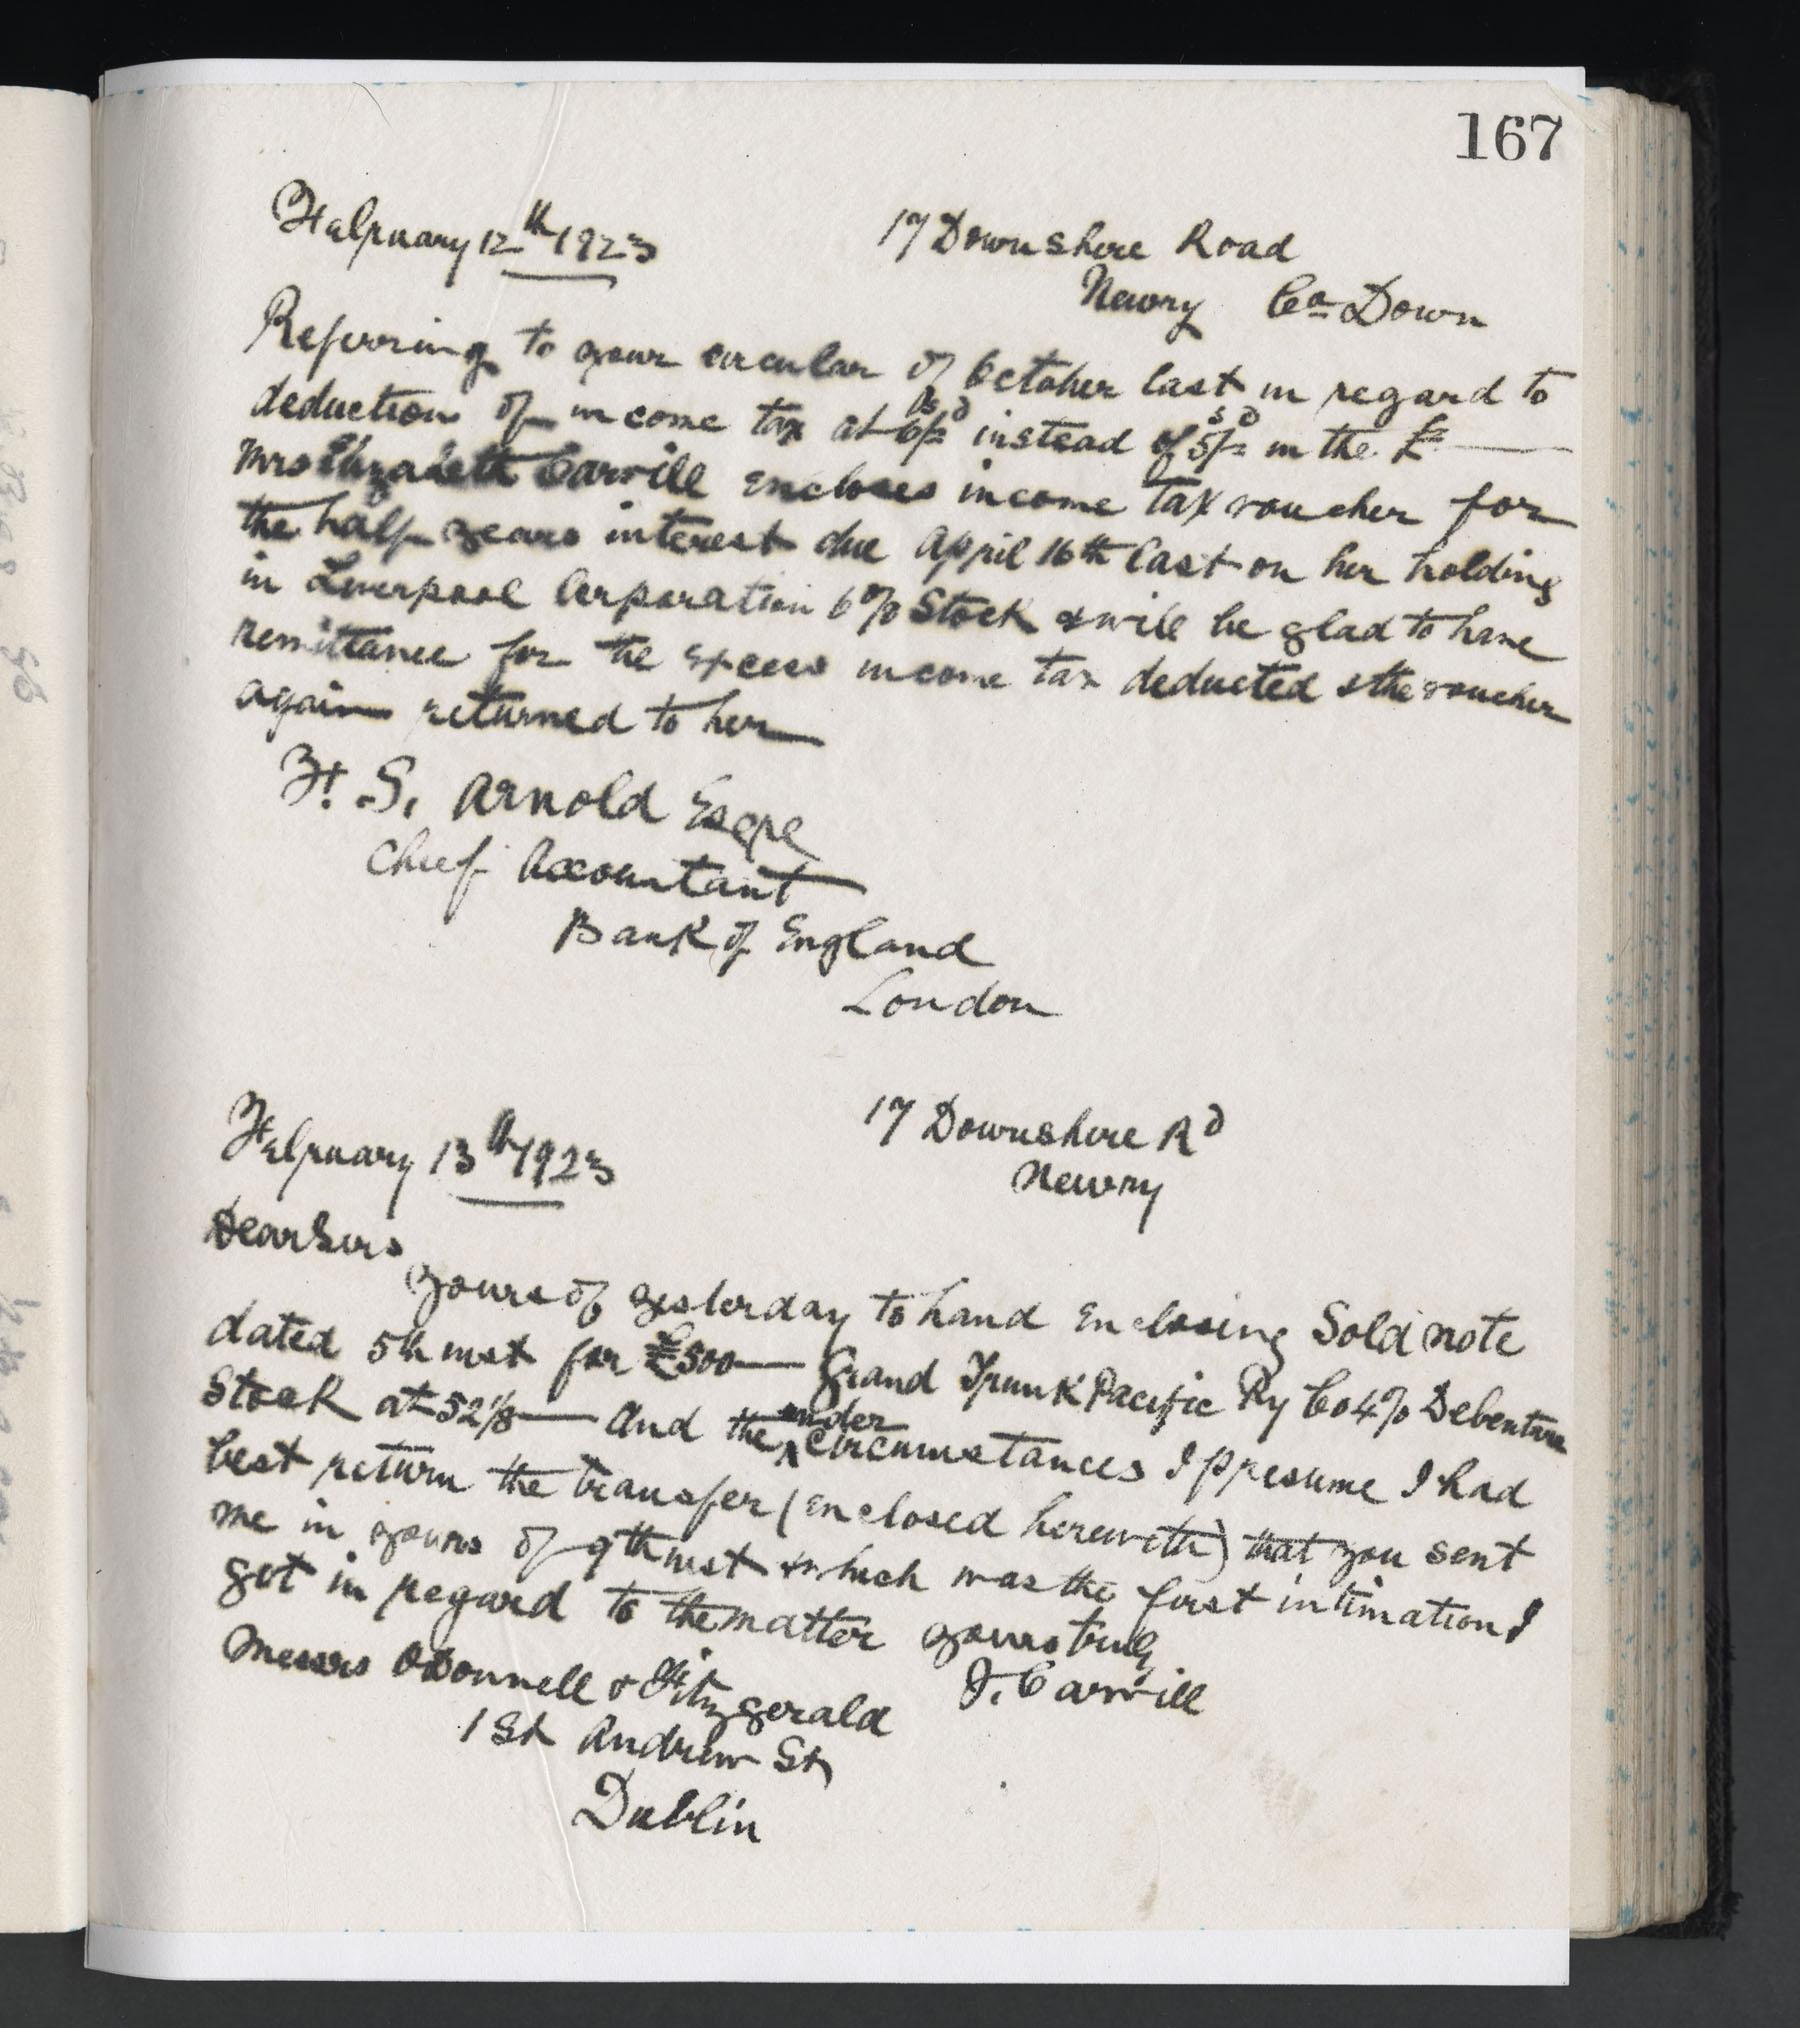 167
February 12th 1923
17 Downshire Road
Newry Co Down
Referring to your circular of October last in regard to
deduction of income tax at 6s/=d instead of 5s/=d in the £
Mrs Elizabeth Carvill encloses income tax voucher for
the half years interest due April 16th last on her holding
in Liverpool Corporation 6% Stock & will be glad to have
remittance for the excess income tax deducted & the voucher
again returned to her
F. S. Arnold Esqre
Chief Accountant
Bank of England
London
February 13th 1923
17 Downshire Rd
Newry
Dear Sirs
yours of yesterday to hand enclosing Sold note
dated 5th inst for £500 Grand Trunk Pacific Ry Co 4% Debenture
Stock at 52 1/8 And the under circumstances I presume I had
best return the transfer (enclosed herewith) that you sent
me in yours of 9th inst & which was the first intimation I
got in regard to the matter yours truly
Messrs O'Donnell & Fitzgerald J. Carvill
1 St Andrew St
Dublin